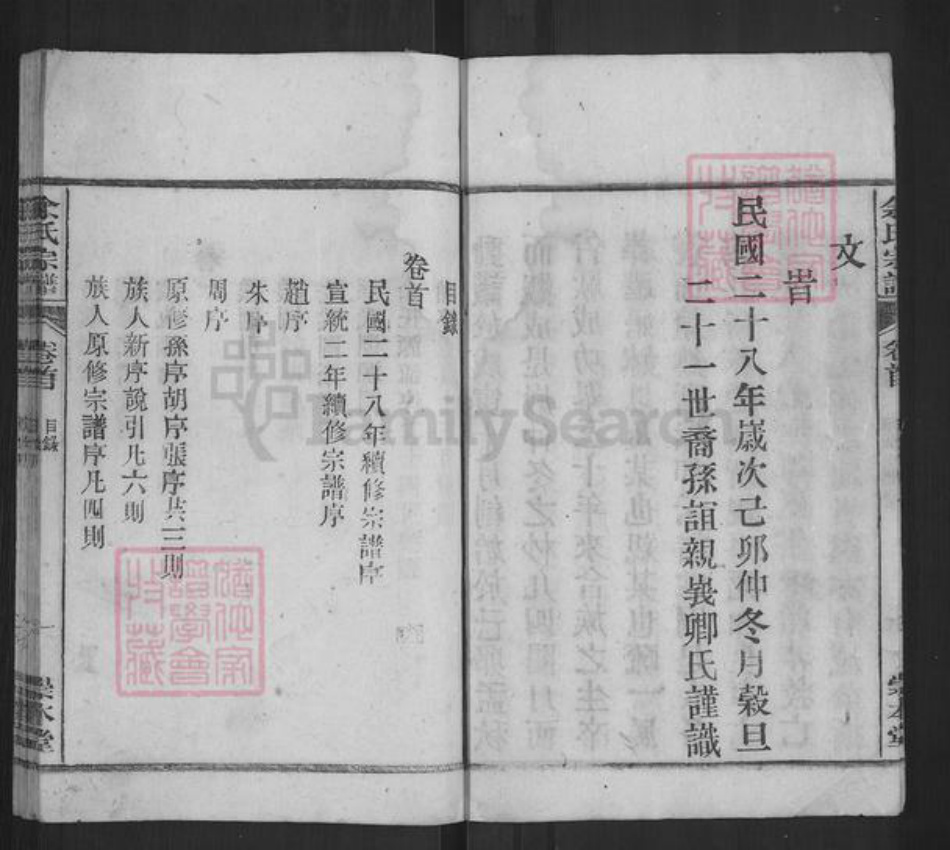 余氏宗譜
卷首
文
旹
民國二十八年嵗次己夘仲冬月穀旦
二十一世裔孫誼親㠜卿氏謹識
崇本堂
目錄
卷首
民國二十八年續修宗譜序
宣統二年續修宗譜序
趙序
朱序
周序
原修孫序胡序張序共三則
族人新序說引凡六則
族人原修宗譜序凡四則
余氏宗譜
卷首
目錄
一
崇本堂
FamilySearch